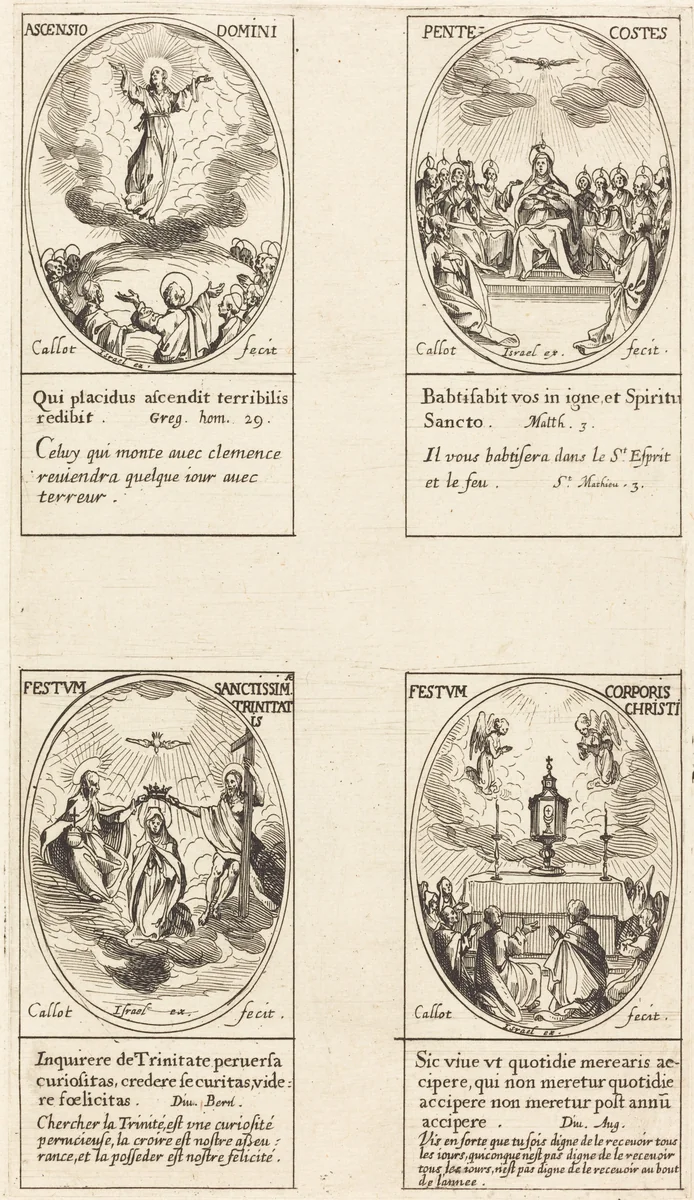 ASCENSIO DOMINI
Callot fecit
Israel ex.
Qui placidus ascendit terribilis
redibit . Greg. hom. 29.
Celuy qui monte auec clemence
reuiendra quelque iour auec
terreur .
PENTE= COSTES
Callot Israel ex. fecit.
Babtiſabit vos in igne, et Spiritu
Sancto . Matth. 3.
Il vous babtiſera dans le St. Eſprit
et le feu . St. Mathieu. 3.
FESTVM SANCTISSIM.Æ
TRINITAT
IS
Callot Iſrael ex. fecit.
Inquirere de Trinitate peruerſa
curioſitas, credere ſecuritas, vide:
re fœlicitas . Diu. Bern.
Chercher la Trinité, eſt vne curioſité
pernicieuſe, la croire eſt noſtre aſſeu:
rance, et la poſſeder eſt noſtre felicité.
FESTVM CORPORIS
CHRISTI
Callot fecit.
Israel ex.
Sic viue vt quotidie merearis ac-
cipere, qui non meretur quotidie
accipere non meretur poſt annũ
accipere . Diu. Aug.
Vis en ſorte que tu ſois digne de le receuoir tous
les iours, quiconque n'eſt pas digne de le receuoir
tous les iours, n'eſt pas digne de le receuoir au bout
de l'annee .